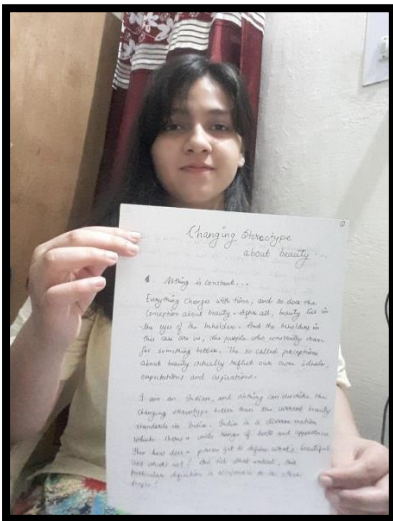 Changing Stereotype
about beauty
Nothing is constant...
Everything changes with time, and so does the
conception about beauty. After all, beauty lies in
the eyes of the beholder. And the beholders in
this case are us, the people who constantly crave
for something better. The so called perceptions
about beauty actually reflect our own ideals,
expectations and aspirations.
I am an Indian, and nothing can describe this
changing stereotype better than the current beauty
standards in India. India is a diverse nation
which shows a wide range of and appearance
How does a person get to define what's beautiful
and what's not? And for that matter,
particular definition is to other
people?